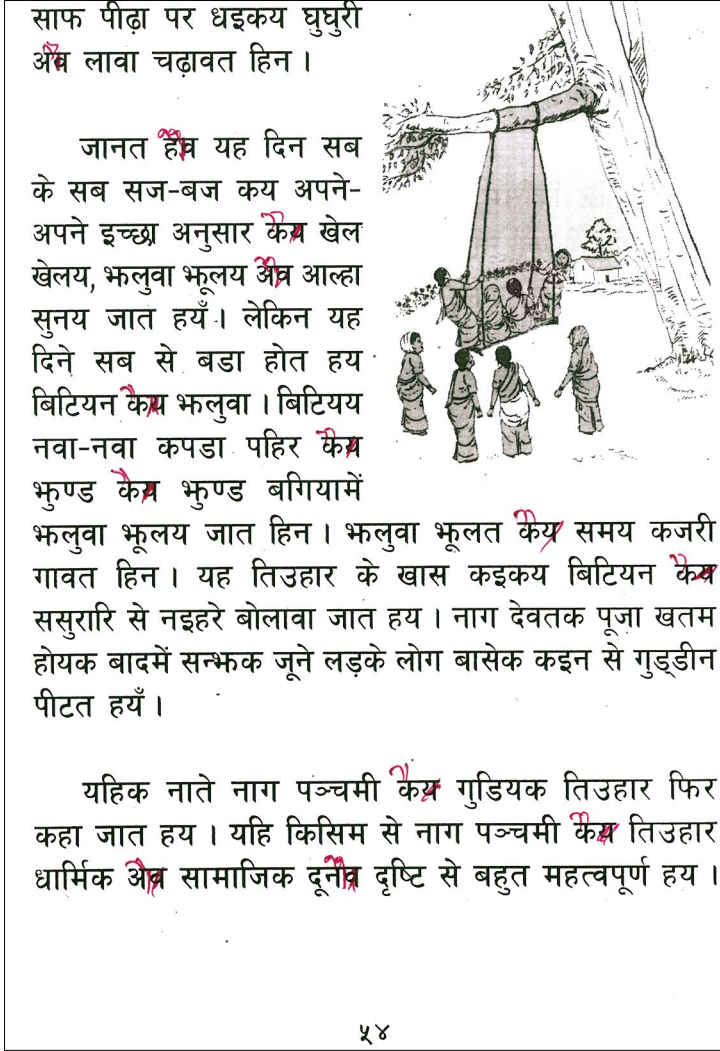 साफ पीढ़ा पर धइकय घुघुरी
अैव लावा चढ़ावत हिन ।
जानत हैव यह दिन सब
के सब सज-बज कय अपने-
अपने इच्छा अनुसार कैय खेल
खेलय, झलुवा झूलय अैव आल्हा
सुनय जात हयँ । लेकिन यह
दिने सब से बडा होत हय
बिटियन कैय झलुवा । बिटियय
नवा-नवा कपडा पहिर कैय
झुण्ड कैय झुण्ड बगियामें
झलुवा झूलय जात हिन । झलुवा झूलत कैय समय कजरी
गावत हिन । यह तिउहार के खास कइकय बिटियन कैय
ससुरारि से नइहरे बोलावा जात हय । नाग देवतक पूजा खतम
होयक बादमें सन्झक जूने लड़के लोग बासेक कइन से गुड्डीन
पीटत हयँ ।
यहिक नाते नाग पञ्चमी कैय गुडियक तिउहार फिर
कहा जात हय । यहि किसिम से नाग पञ्चमी कैय तिउहार
धार्मिक अैव सामाजिक दूनैव दृष्टि से बहुत महत्वपूर्ण हय ।
५४